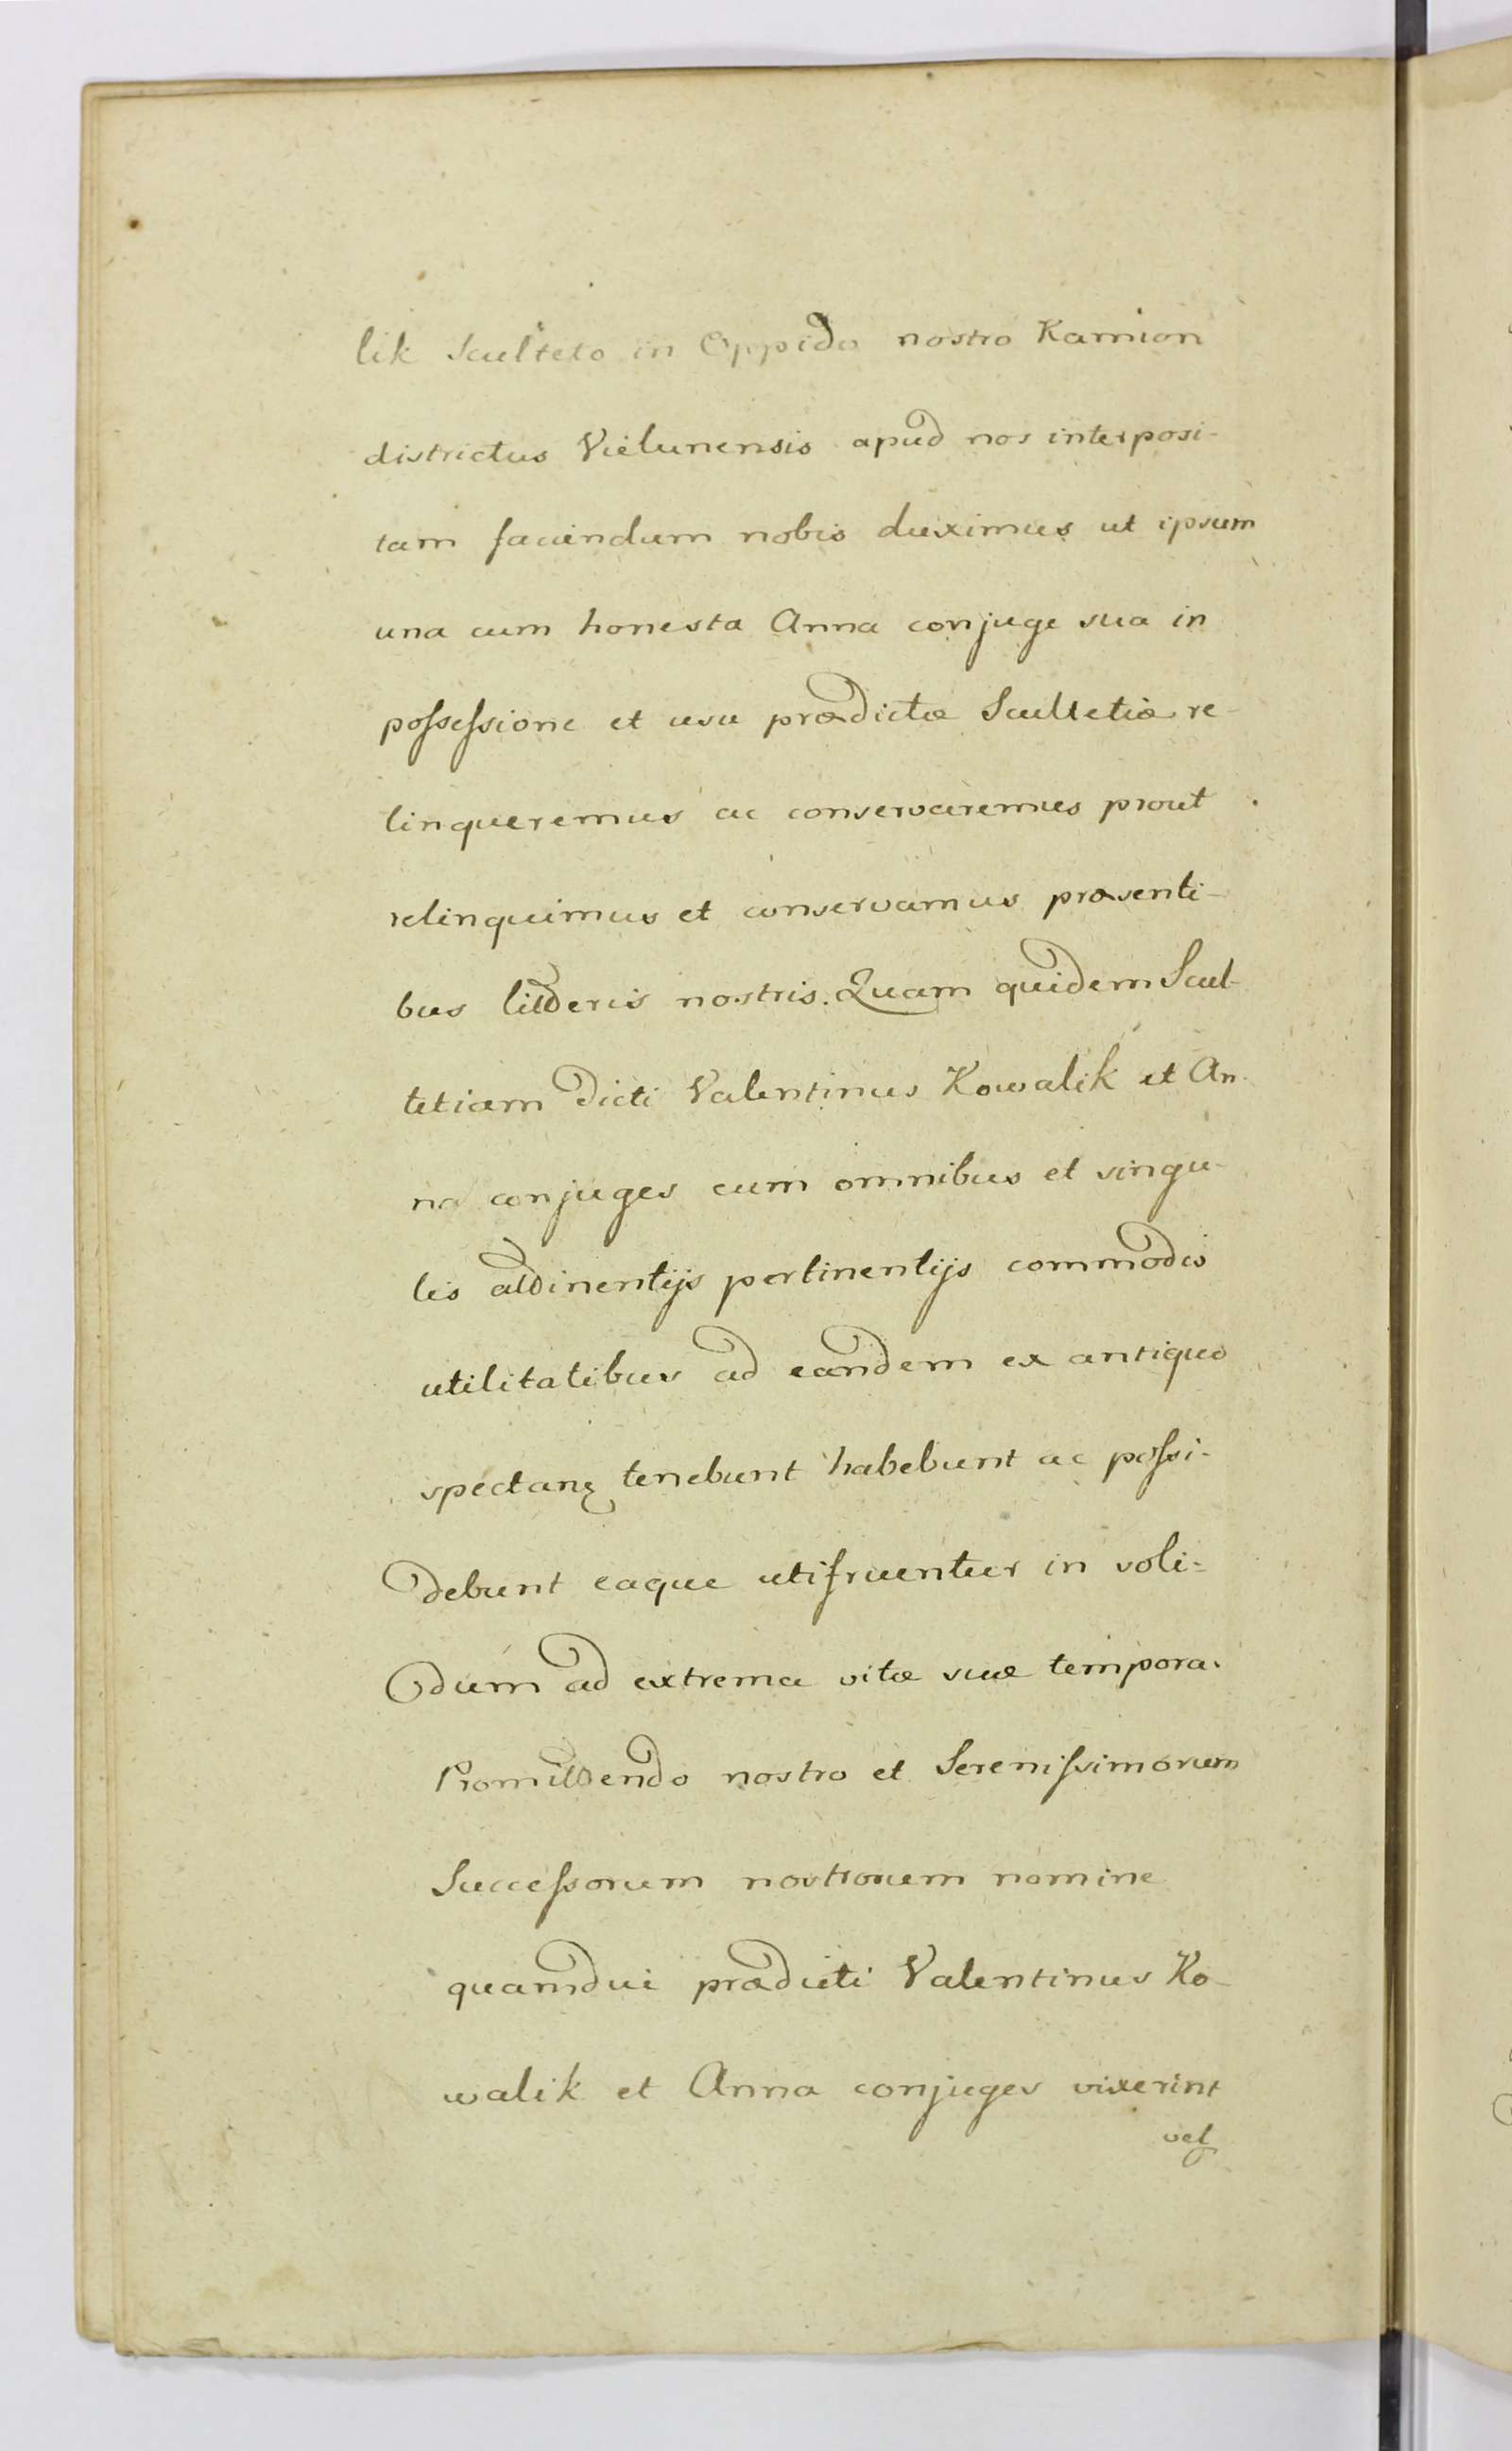 lik Sculteto in Oppido nostro Kamion
districtus Vielunensis apud nos interposi-
tam faciendum nobis duximus ut ipsum
una cum honesta Anna conjuge sua in
possessione et usu prædictæ Scultetiæ re-
linqueremus ac conservaremus prout
relinquimus et conservamus præsenti-
bus litteris nostris. Quam quidem Scul-
tetiam dicti Valentinus Kowalik et An-
na conjuges cum omnibus et singu-
lis attinentijs pertinentijs commodis
utilitatibus ad eandem ex antiquo
spectanę tenebunt habebunt ac possi-
debunt eaque utifruentur in soli=
dum ad extrema vitæ suæ tempora.
Promittendo nostro et Serenissimorum
Successorum nostrorum nomine
quamdui prædicti Valentinus Ko-
walik et Anna conjuges vixerint
vel